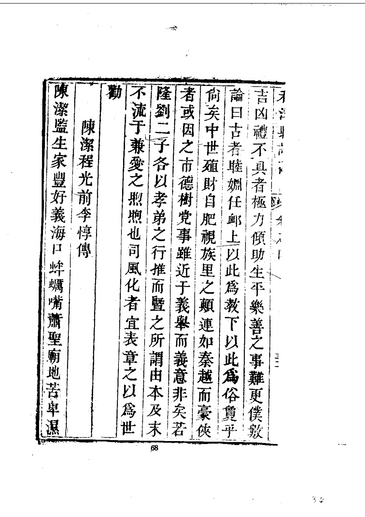 吉凶禮不具者極力傾助生平樂善之事難更僕數
論曰古者睦婣任卹上以此為教下以此為俗夐乎
尚矣中世殖財自肥視族里之顛連如秦越而豪俠
者或因之市德樹黨事雖近于義舉而義意非矣若
隆劉二子各以孝弟之行推而暨之所謂由本及末
不流于兼愛之煦煦也司風化者宜表章之以為世
勸
陳潔程光前李惇傳
陳潔監生家豐好義海口蚌蠣嘴蕭聖廟地苦卑濕
68